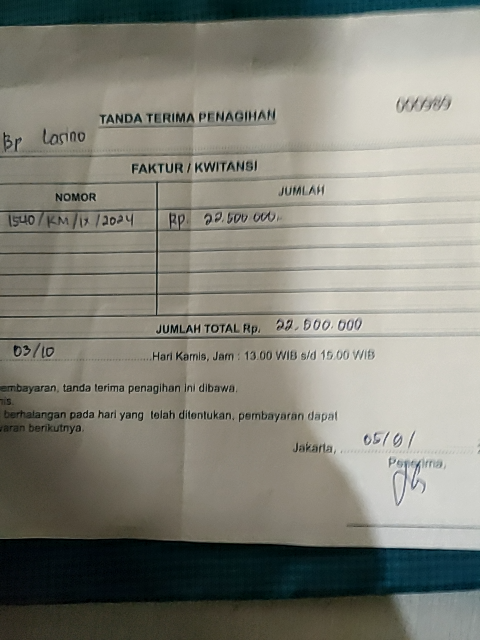 000989
TANDA TERIMA PENAGIHAN
Bp Lasino
FAKTUR / KWITANSI
NOMOR JUMLAH
1540/KM/IX/2024 Rp. 22.500.000,-
JUMLAH TOTAL Rp. 22.500.000
03/10 Hari Kamis, Jam : 13.00 WIB s/d 15.00 WIB
embayaran, tanda terima penagihan ini dibawa.
nis.
berhalangan pada hari yang telah ditentukan, pembayaran dapat
yaran berikutnya.
Jakarta, 05/9/
Penerima,